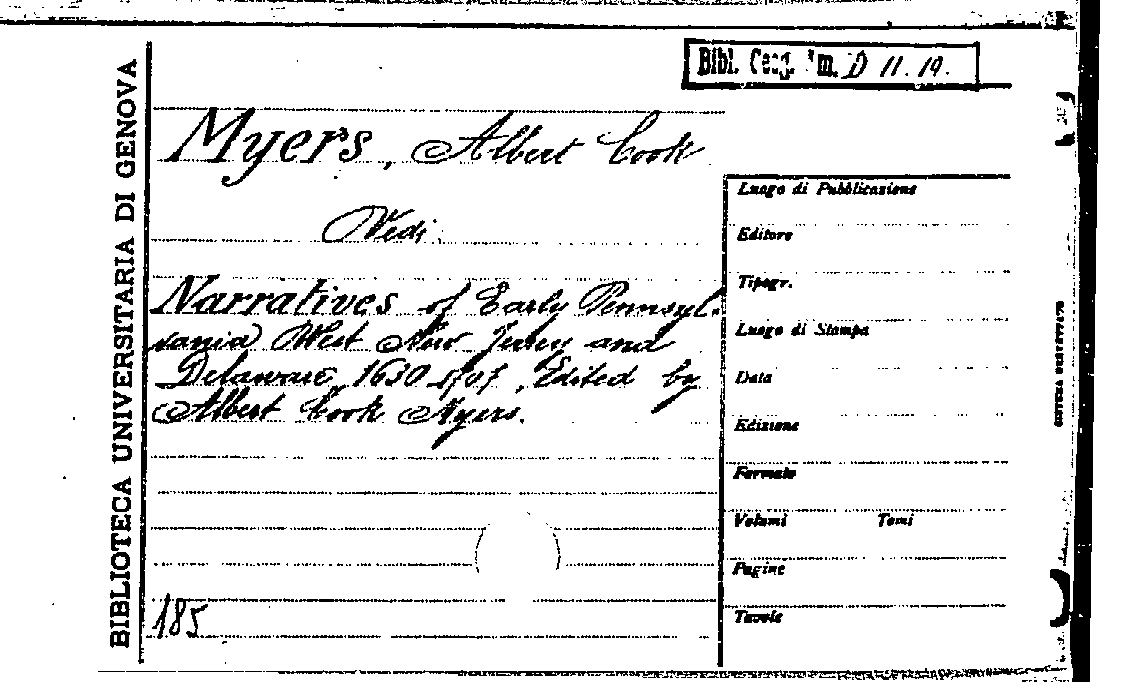 Bibl. Geog. Im. D 11.19.
BIBLIOTECA UNIVERSITARIA DI GENOVA
Myers, Albert Cook
Vedi:
Narratives of Early Pennsyl-
vania West New Jersey and
Delaware, 1630 , Edited by
Albert Cook Myers.
185
Luogo di Pubblicazione
Editore
Tipogr.
Luogo di Stampa
Data
Edizione
Formato
Volumi Tomi
Pagine
Tavole